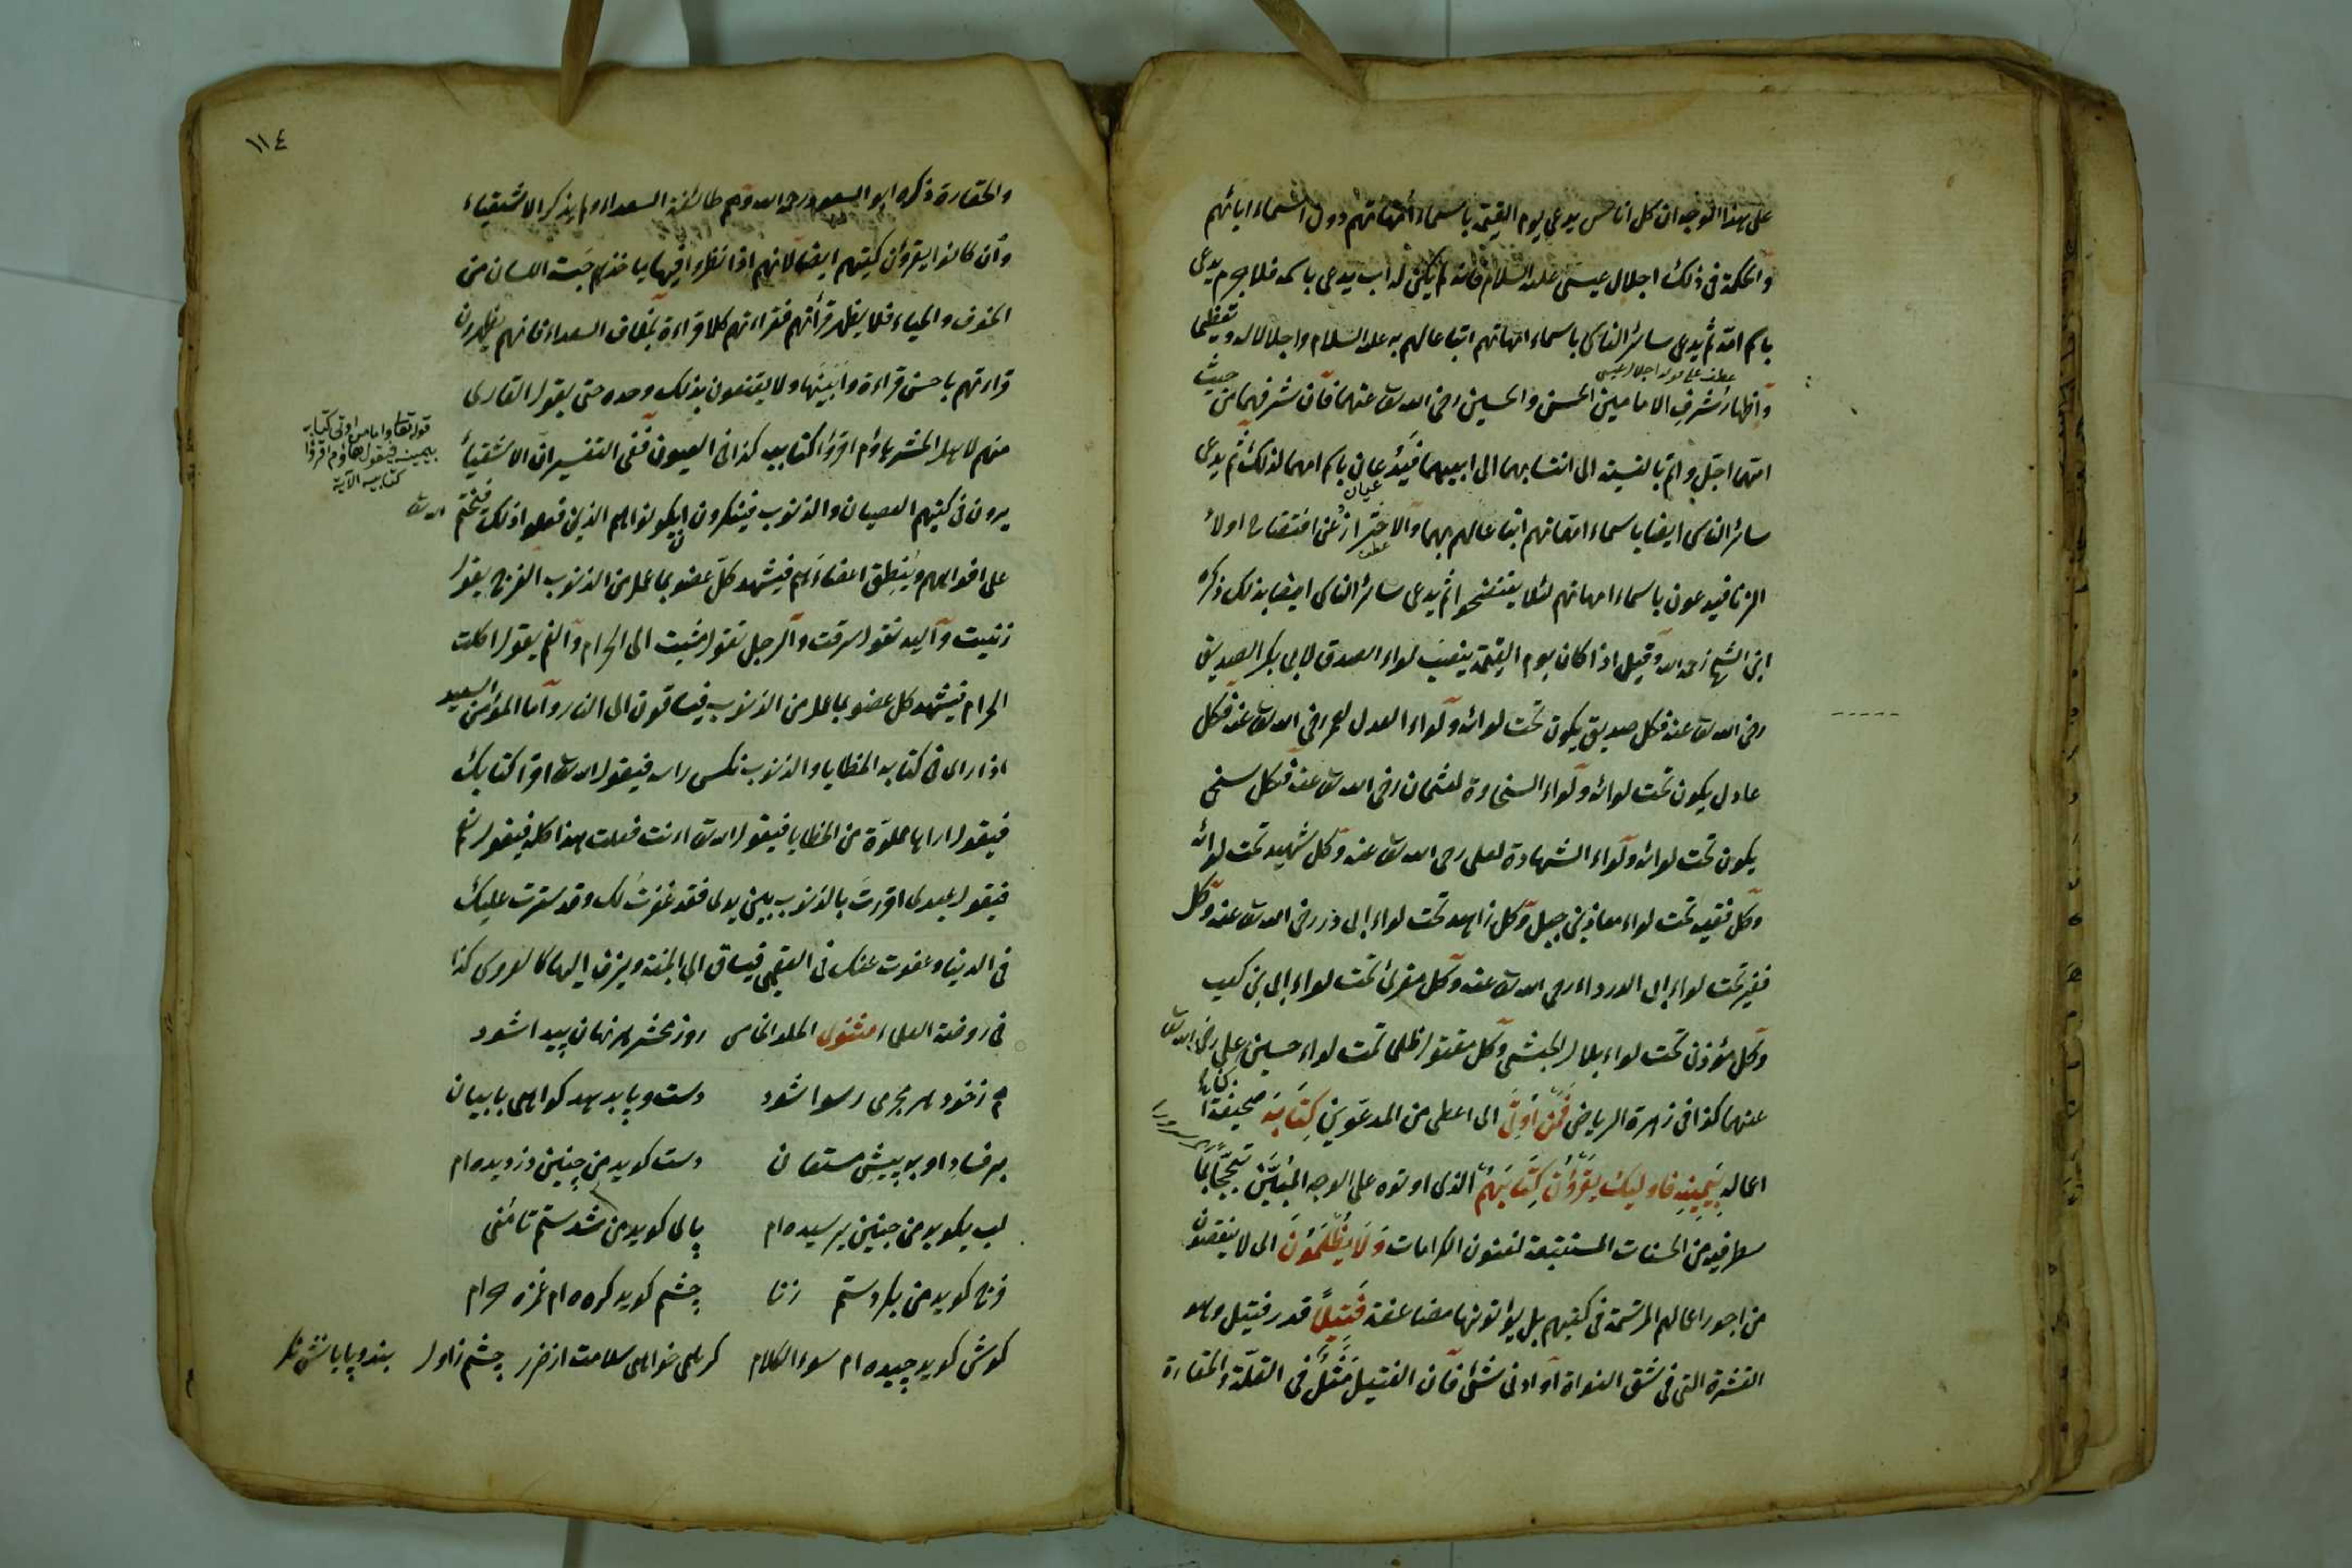 على هذا الوجه ان كل اناس يدعى يوم القيمة باسماء امهاتهم دون اسماء ابائهم
والحكمة فى ذلك اجلال عيسى عليه السلام فانه لم يكن له اب يدعى باسمه فلا جرم يدعى
باسم امه ثم يدعى سائر الناس باسماء امهاتهم اتباعا لهم به عليه السلام واجلالا له وتعظيما
عطف على قوله اجلال عيسى
واظهار شرف الامامين الحسن والحسين رضى الله تعا عنهما فان شرفهما من حيث
امهما اجل واتم بالنسبة الى انتسابهما الى ابيهما فيدعان باسم امهما لذلك ثم يدعى
سائر الناس ايضا باسماء امهاتهم اتباعا لهم بهما والاحتراز عن افتضاح اولاد
الزنا فيدعون باسماء امهاتهم لئلا يفتضحوا ثم يدعى سائر الناس ايضا بذلك ذكره
ابن الشيخ رحمه الله وقيل اذا كان يوم القيمة ينصب لواء الصدق لابى بكر الصديق
رضى الله تعا عنه فكل صديق يكون تحت لوائه ولواء العدل لعمر رضى الله تعا عنه فكل
عادل يكون تحت لوائه ولواء السخاوة لعثمان رضى الله تعا عنه فكل سخى
يكون تحت لوائه ولواء الشهادة لعلى رضى الله تعا عنه وكل شهيد تحت لوائه
وكل فقيه تحت لواء معاذ بن جبل وكل زاهد تحت لواء ابى ذر رضى الله تعا عنه وكل
فقير تحت لواء ابى الدرداء رضى الله تعا عنه وكل مقرئ تحت لواء ابى بن كعب
وكل مؤذن تحت لواء بلال الحبشى وكل مقتول ظلما تحت لواء حسين بن على رضى الله تعا
عنهما كذا فى زهرة الرياض فَمَنْ اُوتِىَ اى اعطى من المدعوين كِتَابَهُ صحيفة
اعماله بِيَمِينِهِ فاولئك يَقْرَؤُنَ كِتَابَهُمْ الذى اوتوه على الوجه المبين تبجحا بما
سطر فيه من الحسنات المستتبعة لفنون الكرامات وَلَا يُظْلَمُونَ اى لا ينقصون
من اجور اعمالهم المرتسمة فى كتبهم بل يؤتونها مضاعفة فَتِيلًا قدر فتيل وهو
القشرة التى فى شق النواة او ادنى شئ فان الفتيل مثل فى القلة والحقارة
١١٤
والحقارة ذكره ابو السعود رحمه الله وهم طائفة السعداء ولم يذكر الاشقياء
وان كانوا يقرؤن كتبهم ايضا لانهم اذا نظروا فيها ياخذهم حبسة اللسان من
الخوف والحياء فلا يظهر قرأتهم فقراءتهم كلا قراءة بخلاف السعداء فانهم يظهرون
قراءتهم باحسن قراءة وابينها ولا يقنعون بذلك وحده حتى يقول القارى
منهم لاهل المحشر هاؤم اقرؤا كتابيه كذا فى العيون ففى التفسير ان الاشقياء
قوله تعا واما من اوتى كتابه
بيمينه فيقول هاؤم اقرؤا
كتابيه الآية
يرون فى كتبهم العصيان والذنوب فينكرون ان يكونوا هم الذين فعلوا ذلك فيختم الله تعا
على افواههم وينطق اعضاءهم فيشهد كل عضو بما عمل من الذنوب الفرج يقول
زنيت واليد تقول سرقت والرجل تقول مشيت الى الحرام والفم يقول اكلت
الحرام فيشهد كل عضو بما عمل من الذنوب فيساقون الى النار واما المؤمن السعيد
اذا راى فى كتابه الخطايا والذنوب نكس راسه فيقول الله تعا اقرا كتابك
فيقول اراها مملوة من الخطايا فيقول الله تعا ءانت فعلت هذا كله فيقول نعم
فيقول عبدى اقررت بالذنوب بين يدى فقد غفرت لك وقد سترت عليك
فى الدنيا وعفوت عنك فى العقبى فيساق الى الجنة ويزف اليها كالعروس كذا
فى روضة العلماء مثنوى الجلد الخامس روز محشر هر نهان پيدا شود
هم ز خود هر مجرمى رسوا شود دست و پا بدهد كواهى با بيان
بر فساد او به پيش مستعان دست كويد من چنين دزديده ام
لب بكويد من چنين پرسيده ام پاى كويد من شدستم تا منى
فرج كويد من بكردستم زنا چشم كويد كرده ام غمزه حرام
كوش كويد چيده ام سوء الكلام كر همى خواهى سلامت از ضرر چشم ز اول بند و پايان نكر